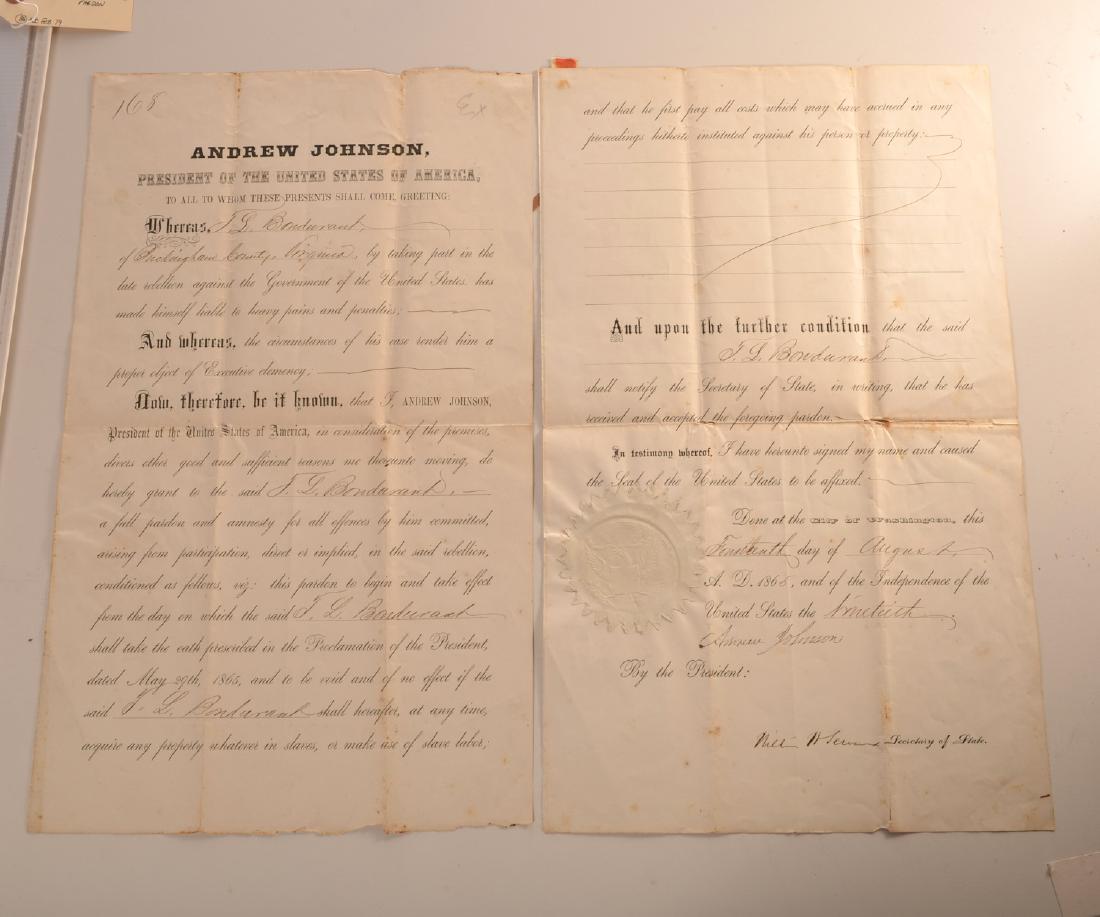 PARDON
FEB 79
168
Ex
ANDREW JOHNSON,
PRESIDENT OF THE UNITED STATES OF AMERICA,
TO ALL TO WHOM THESE PRESENTS SHALL COME, GREETING:
Whereas, T. L. Bondurant,
of County, Virginia, by taking part in the
late rebellion against the Government of the United States, has
made himself liable to heavy pains and penalties;
And whereas, the circumstances of his case render him a
proper object of Executive clemency;
Now, therefore, be it known, that I, ANDREW JOHNSON,
President of the United States of America, in consideration of the premises,
divers other good and sufficient reasons me thereunto moving, do
hereby grant to the said T. L. Bondurant,
a full pardon and amnesty for all offences by him committed,
arising from participation, direct or implied, in the said rebellion,
conditioned as follows, viz: this pardon to begin and take effect
from the day on which the said T. L. Bondurant
shall take the oath prescribed in the Proclamation of the President,
dated May 29th, 1865, and to be void and of no effect if the
said T. L. Bondurant shall hereafter, at any time,
acquire any property whatever in slaves, or make use of slave labor;
and that he first pay all costs which may have accrued in any
proceedings hitherto instituted against his person or property:
And upon the further condition that the said
T. L. Bondurant,
shall notify the Secretary of State, in writing, that he has
received and accepted the foregoing pardon.
In testimony whereof, I have hereunto signed my name and caused
the Seal of the United States to be affixed.
Done at the City of Washington, this
day of August,
A. D. 1865, and of the Independence of the
United States the Ninetieth,
Andrew Johnson
By the President:
Secretary of State.